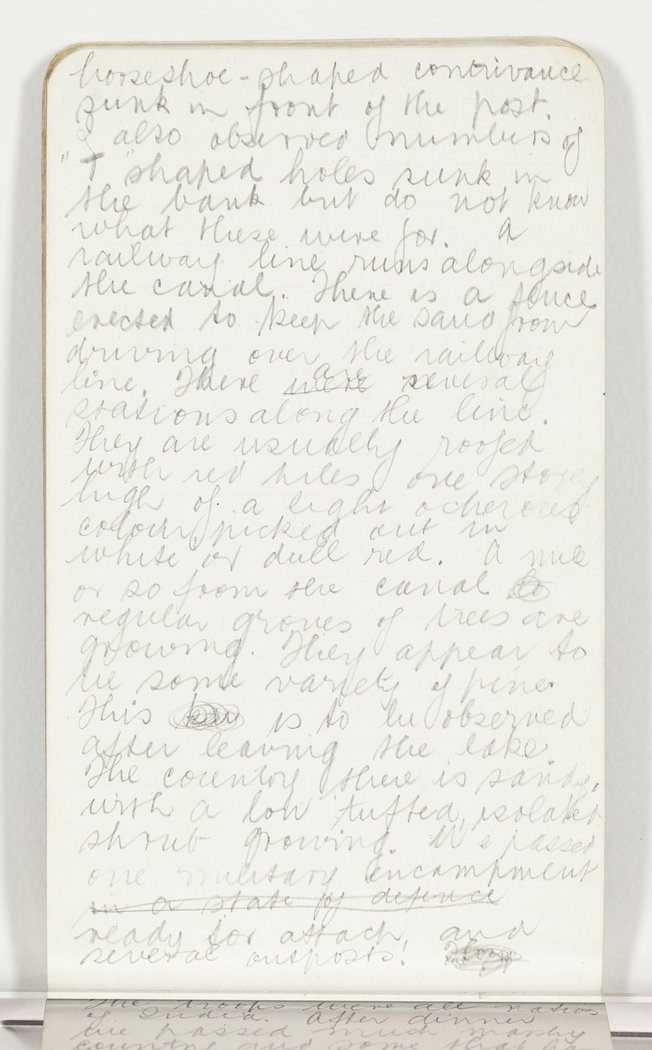 horseshoe-shaped contrivance
sunk in front of the post.
I also observed numbers of
"T" shaped holes sunk in
the bank but do not know
what these were for. A
railway line runs alongside
the canal. There is a fence
erected to keep the sand from
driving over the railway
line. There were are several
stations along the line.
They are usually roofed
with red tiles one storey
high of a light ocherous
colour, picked out in
white or dull red. A mile
or so from the canal
regular groves of trees are
growing. They appear to
be some variety of pine.
This is to be observed
after leaving the lake.
The country there is sandy,
with a low tufted, isolated
shrub growing. We passed
one military encampment
in a state of defence
ready for attack, and
several outposts.
The troops were all natives
of India. After dinner
we passed much marshy
country and some that